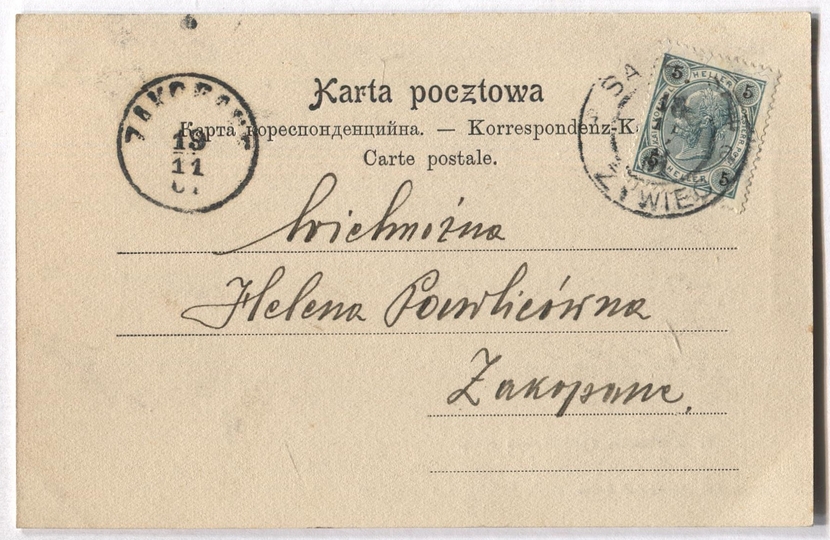 Karta pocztowa
Карта кореспонденцийна. — Korrespondenz-Ka
Carte postale.
ZAKOPANE
19
11
5 HELLER 5
5 HELLER 5
ŻYWIEC
Wielmożna
Helena Pawlicówna
Zakopane.